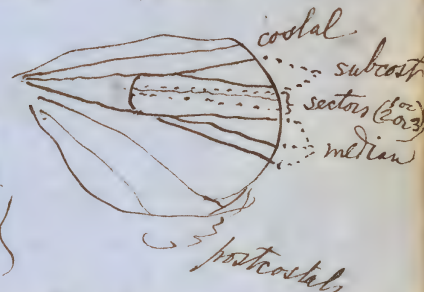 costal
subcost
sectors (1 or
2 or 3)
median
postcostals